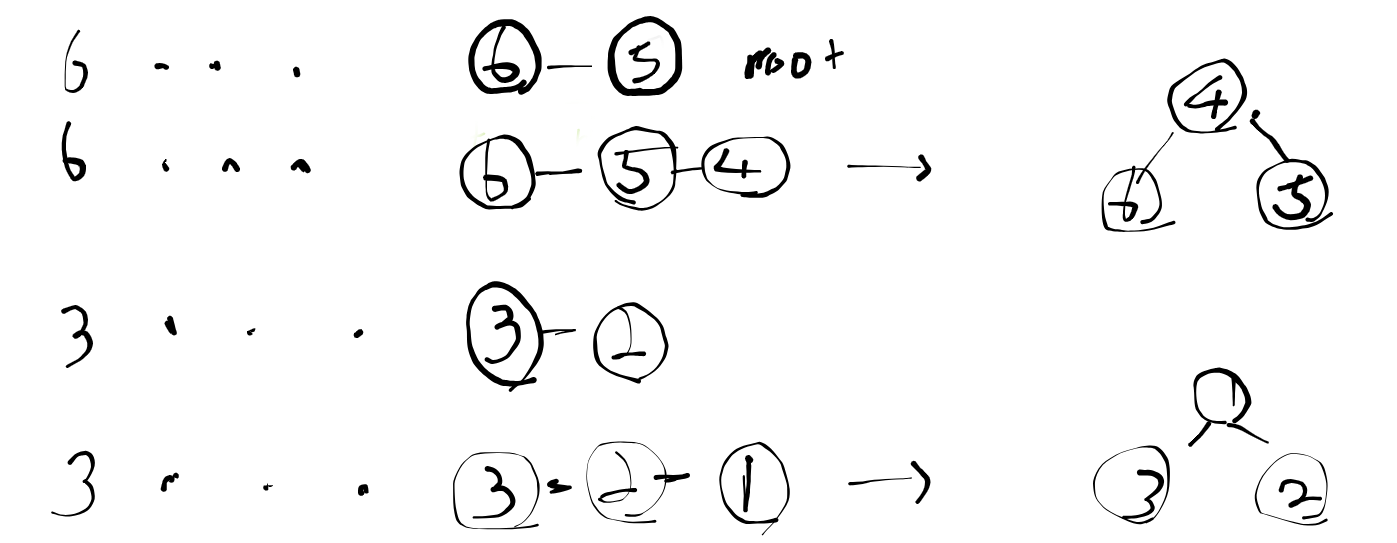 6 . . . 6 - 5 root
6 . . . 6 - 5 - 4 →
4
6 5
3 . . . 3 - 2
3 . . . 3 - 2 - 1 →
1
3 2